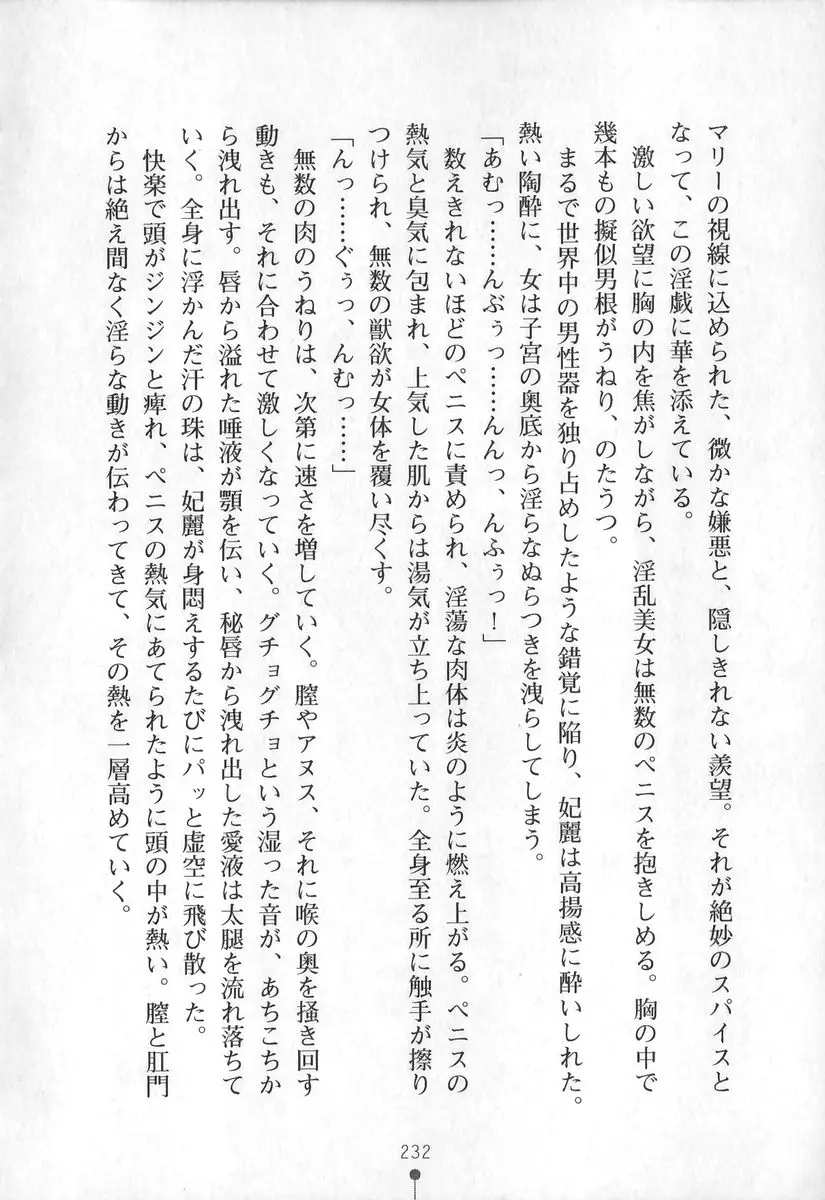 マリーの視線に込められた、微かな嫌悪と、隠しきれない羨望。それが絶妙のスパイスと
なって、この淫戯に華を添えている。
　激しい欲望に胸の内を焦がしながら、淫乱美女は無数のペニスを抱きしめる。胸の中で
幾本もの擬似男根がうねり、のたうつ。
　まるで世界中の男性器を独り占めしたような錯覚に陥り、妃麗は高揚感に酔いしれた。
熱い陶酔に、女は子宮の奥底から淫らなぬらつきを洩らしてしまう。
「あむっ……んぶぅっ……んんっ、んふぅっ！」
　数えきれないほどのペニスに責められ、淫蕩な肉体は炎のように燃え上がる。ペニスの
熱気と臭気に包まれ、上気した肌からは湯気が立ち上っていた。全身至る所に触手が擦り
つけられ、無数の獣欲が女体を覆い尽くす。
「んっ……ぐぅっ、んむっ……」
　無数の肉のうねりは、次第に速さを増していく。膣やアヌス、それに喉の奥を掻き回す
動きも、それに合わせて激しくなっていく。グチョグチョという湿った音が、あちこちか
ら洩れ出す。唇から溢れた唾液が顎を伝い、秘唇から洩れ出した愛液は太腿を流れ落ちて
いく。全身に浮かんだ汗の珠は、妃麗が身悶えするたびにパッと虚空に飛び散った。
　快楽で頭がジンジンと痺れ、ペニスの熱気にあてられたように頭の中が熱い。膣と肛門
からは絶え間なく淫らな動きが伝わってきて、その熱を一層高めていく。
232